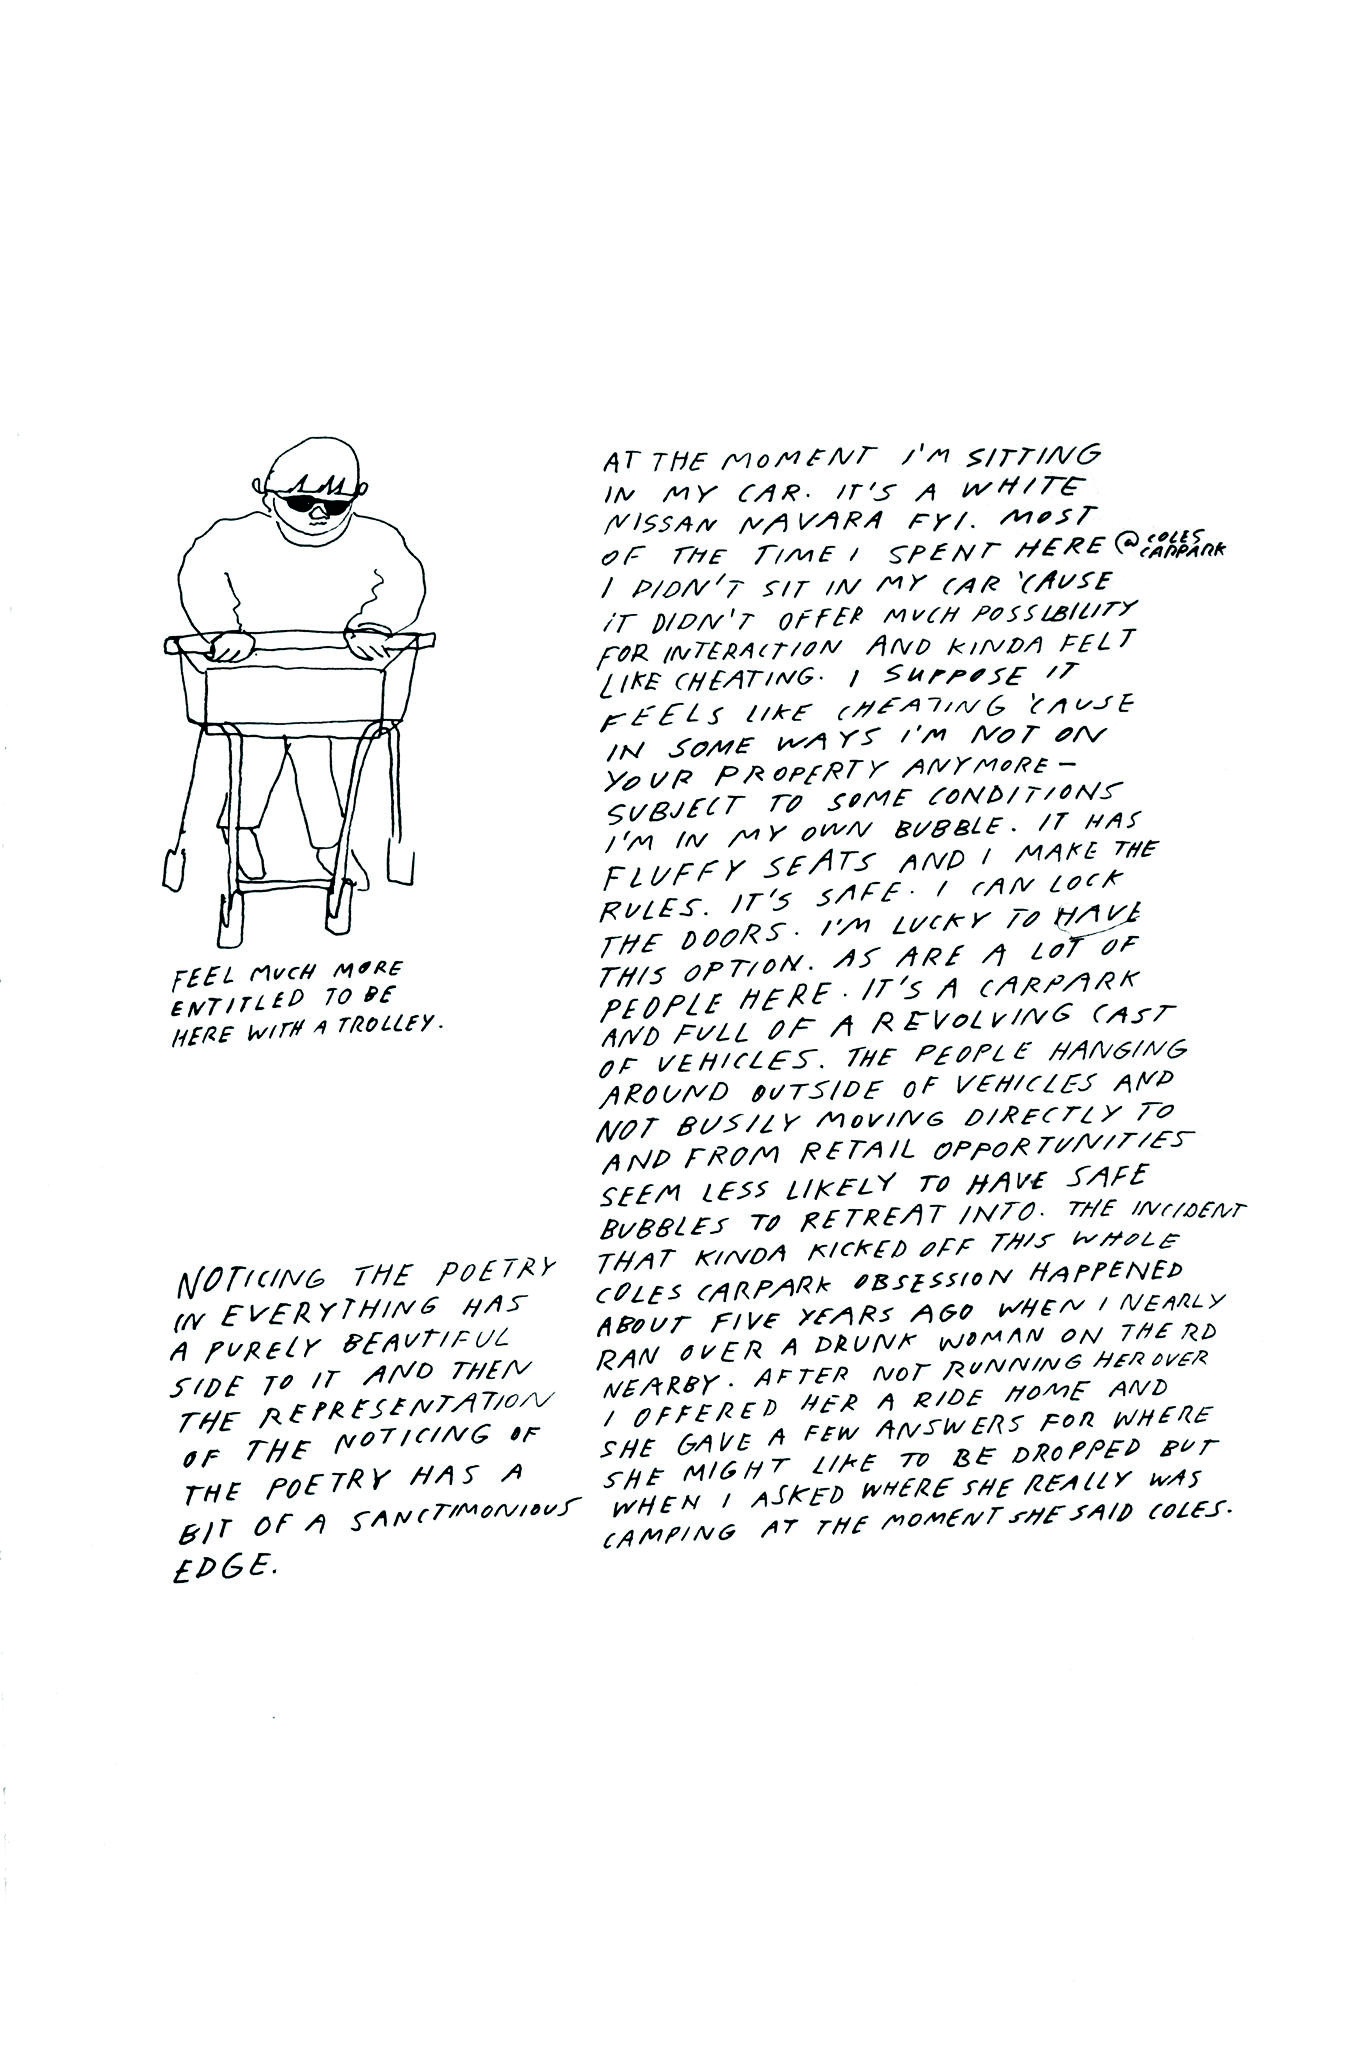 FEEL MUCH MORE
ENTITLED TO BE
HERE WITH A TROLLEY.
NOTICING THE POETRY
IN EVERYTHING HAS
A PURELY BEAUTIFUL
SIDE TO IT AND THEN
THE REPRESENTATION
OF THE NOTICING OF
THE POETRY HAS A
BIT OF A SANCTIMONIOUS
EDGE.
AT THE MOMENT I'M SITTING
IN MY CAR. IT'S A WHITE
NISSAN NAVARA FYI. MOST
OF THE TIME I SPENT HERE @ COLES CARPARK
I DIDN'T SIT IN MY CAR 'CAUSE
IT DIDN'T OFFER MUCH POSSIBILITY
FOR INTERACTION AND KINDA FELT
LIKE CHEATING. I SUPPOSE IT
FEELS LIKE CHEATING 'CAUSE
IN SOME WAYS I'M NOT ON
YOUR PROPERTY ANYMORE –
SUBJECT TO SOME CONDITIONS
I'M IN MY OWN BUBBLE. IT HAS
FLUFFY SEATS AND I MAKE THE
RULES. IT'S SAFE. I CAN LOCK
THE DOORS. I'M LUCKY TO HAVE
THIS OPTION. AS ARE A LOT OF
PEOPLE HERE. IT'S A CARPARK
AND FULL OF A REVOLVING CAST
OF VEHICLES. THE PEOPLE HANGING
AROUND OUTSIDE OF VEHICLES AND
NOT BUSILY MOVING DIRECTLY TO
AND FROM RETAIL OPPORTUNITIES
SEEM LESS LIKELY TO HAVE SAFE
BUBBLES TO RETREAT INTO. THE INCIDENT
THAT KINDA KICKED OFF THIS WHOLE
COLES CARPARK OBSESSION HAPPENED
ABOUT FIVE YEARS AGO WHEN I NEARLY
RAN OVER A DRUNK WOMAN ON THE RD
NEARBY. AFTER NOT RUNNING HER OVER
I OFFERED HER A RIDE HOME AND
SHE GAVE A FEW ANSWERS FOR WHERE
SHE MIGHT LIKE TO BE DROPPED BUT
WHEN I ASKED WHERE SHE REALLY WAS
CAMPING AT THE MOMENT SHE SAID COLES.